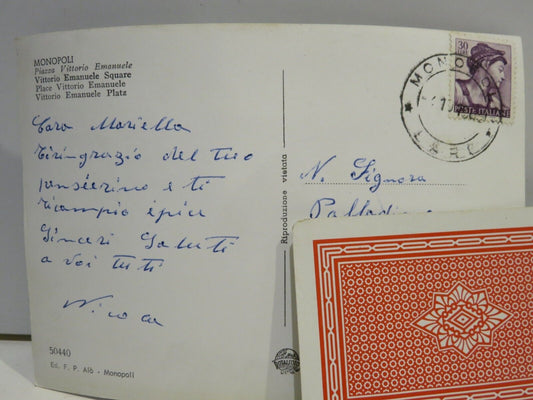 MONOPOLI
Piazza Vittorio Emanuele
Vittorio Emanuele Square
Place Vittorio Emanuele
Vittorio Emanuele Platz
Cara Mariella
ti ringrazio del tuo
pensierino e ti
ricampio i più
Sinceri Saluti
a voi tutti
50440
Ed. F. P. Alò - Monopoli
Riproduzione vietata
30
POSTE ITALIANE
MONOPOLI
N. Signora